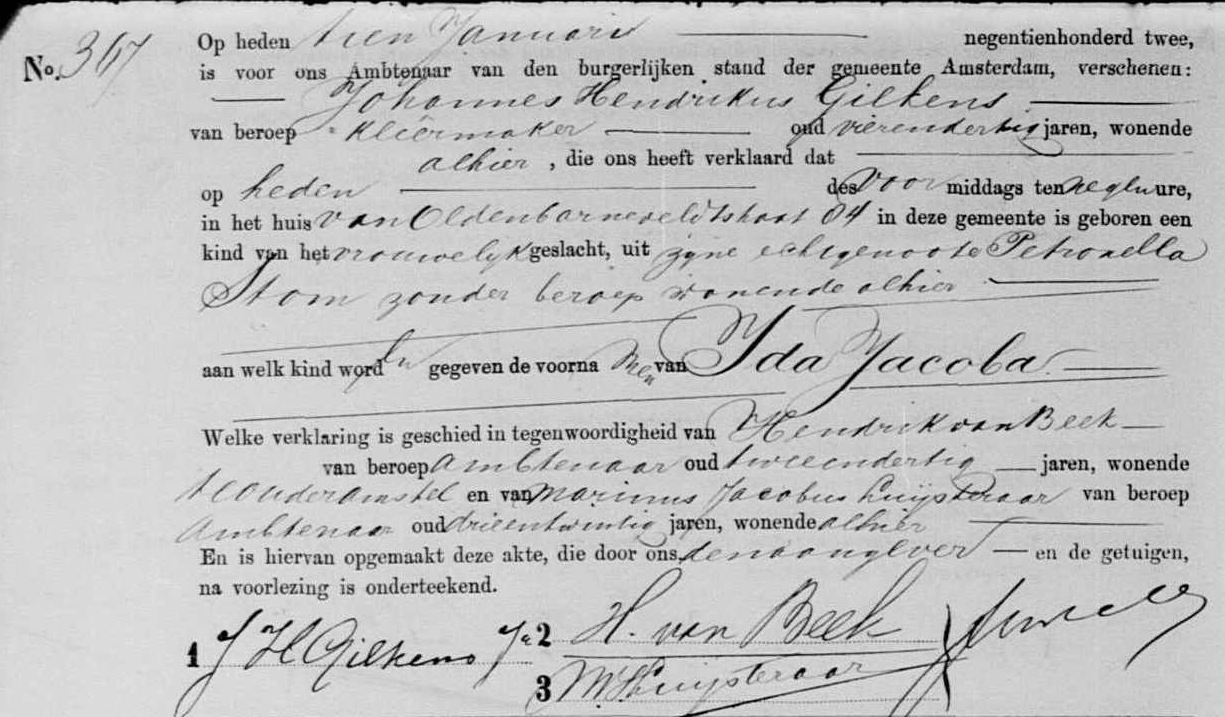 No. 367
Op heden tien Januari negentienhonderd twee,
is voor ons Ambtenaar van den burgerlijken stand der gemeente Amsterdam, verschenen:
Johannes Hendrikus Gilkens
van beroep kleermaker oud vierendertig jaren, wonende
alhier, die ons heeft verklaard dat
op heden des voor middags ten ure,
in het huis van Oldenbarneveldtstraat 84 in deze gemeente is geboren een
kind van het vrouwelijk geslacht, uit zijne echtgenoote Petronella
Stom zonder beroep wonende alhier
aan welk kind word en gegeven de voorna men van Ida Jacoba
Welke verklaring is geschied in tegenwoordigheid van Hendrik van Beek
van beroep ambtenaar oud tweeendertig jaren, wonende
te Ouderamstel en van Marinus Jacobus Luijsteraar van beroep
ambtenaar oud drieentwintig jaren, wonende alhier
En is hiervan opgemaakt deze akte, die door ons, den aangever en de getuigen,
na voorlezing is onderteekend.
1 J H Gilkens 2 H. van Beek
3 M J Luijsteraar